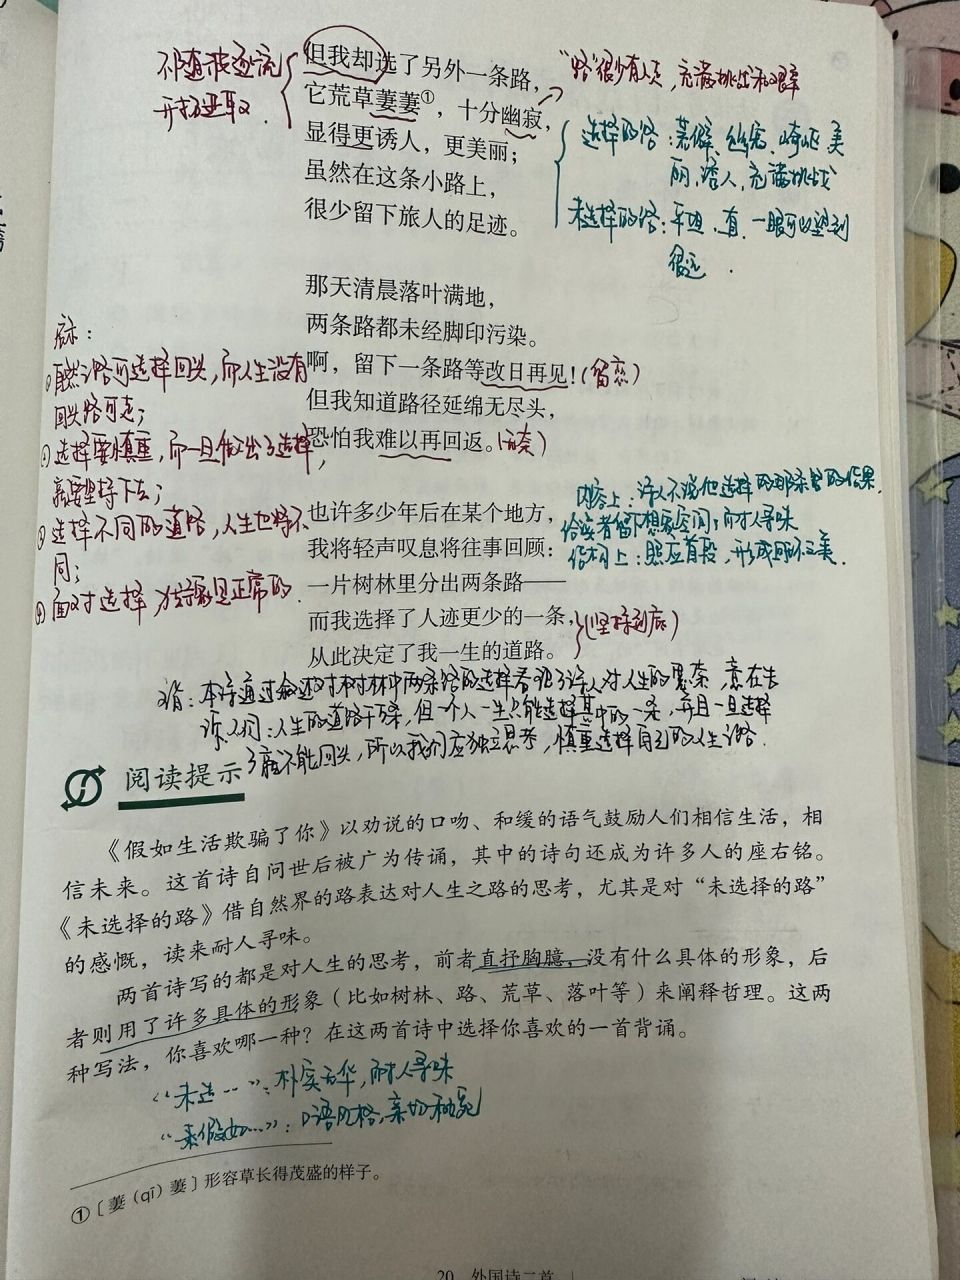 不随波逐流
开拓进取.
但我却选了另外一条路，
它荒草萋萋①，十分幽寂，
显得更诱人，更美丽；
虽然在这条小路上，
很少留下旅人的足迹。
“路”很少有人，充满挑战和艰辛
选择的路：荒僻、丛密、崎岖、美
丽，诱人，充满挑战
未选择的路：平坦、直、一眼可以望到
很远.
那天清晨落叶满地，
两条路都未经脚印污染。
啊，留下一条路等改日再见！(留恋)
但我知道路径延绵无尽头，
恐怕我难以再回返。(无奈)
启示：
①自然之路可选择回头，而人生没有
回头路可走；
②选择要慎重，而一旦做出了选择，
就要坚持下去；
③选择不同的道路，人生也将不
同；
④面对选择 犹豫是正常的.
也许多少年后在某个地方，
我将轻声叹息将往事回顾：
一片树林里分出两条路——
而我选择了人迹更少的一条，
从此决定了我一生的道路。
(坚持到底)
内容上：诗人不说他选择的那条路的结果，
给读者留下想象空间，耐人寻味
结构上：照应首段，形成回环之美.
主旨：本诗通过叙述对树林中两条路的选择看诗人对人生的思索，意在告
诉人们：人生的道路千万条，但一个人一生只能选择其中的一条，并且一旦选择
了就不能回头，所以我们应独立思考，慎重选择自己的人生之路.
阅读提示
《假如生活欺骗了你》以劝说的口吻、和缓的语气鼓励人们相信生活，相
信未来。这首诗自问世后被广为传诵，其中的诗句还成为许多人的座右铭。
《未选择的路》借自然界的路表达对人生之路的思考，尤其是对“未选择的路”
的感慨，读来耐人寻味。
两首诗写的都是对人生的思考，前者直抒胸臆，没有什么具体的形象，后
者则用了许多具体的形象（比如树林、路、荒草、落叶等）来阐释哲理。这两
种写法，你喜欢哪一种？在这两首诗中选择你喜欢的一首背诵。
“未选…”：朴实无华，耐人寻味
“假如…”：口语风格，亲切和婉
①〔萋（qī）萋〕形容草长得茂盛的样子。
20 外国诗二首